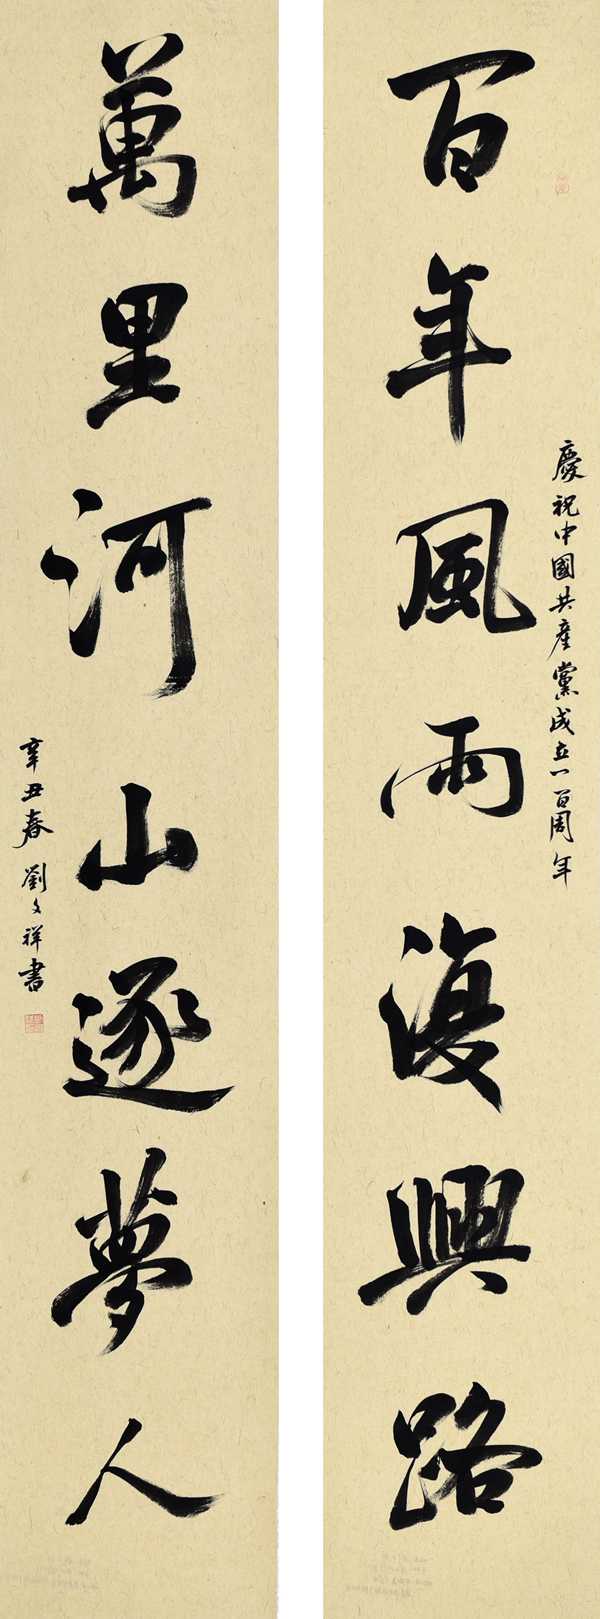 慶祝中國共產黨成立一百周年
百年風雨復興路
萬里河山逐夢人
辛丑春劉文祥書